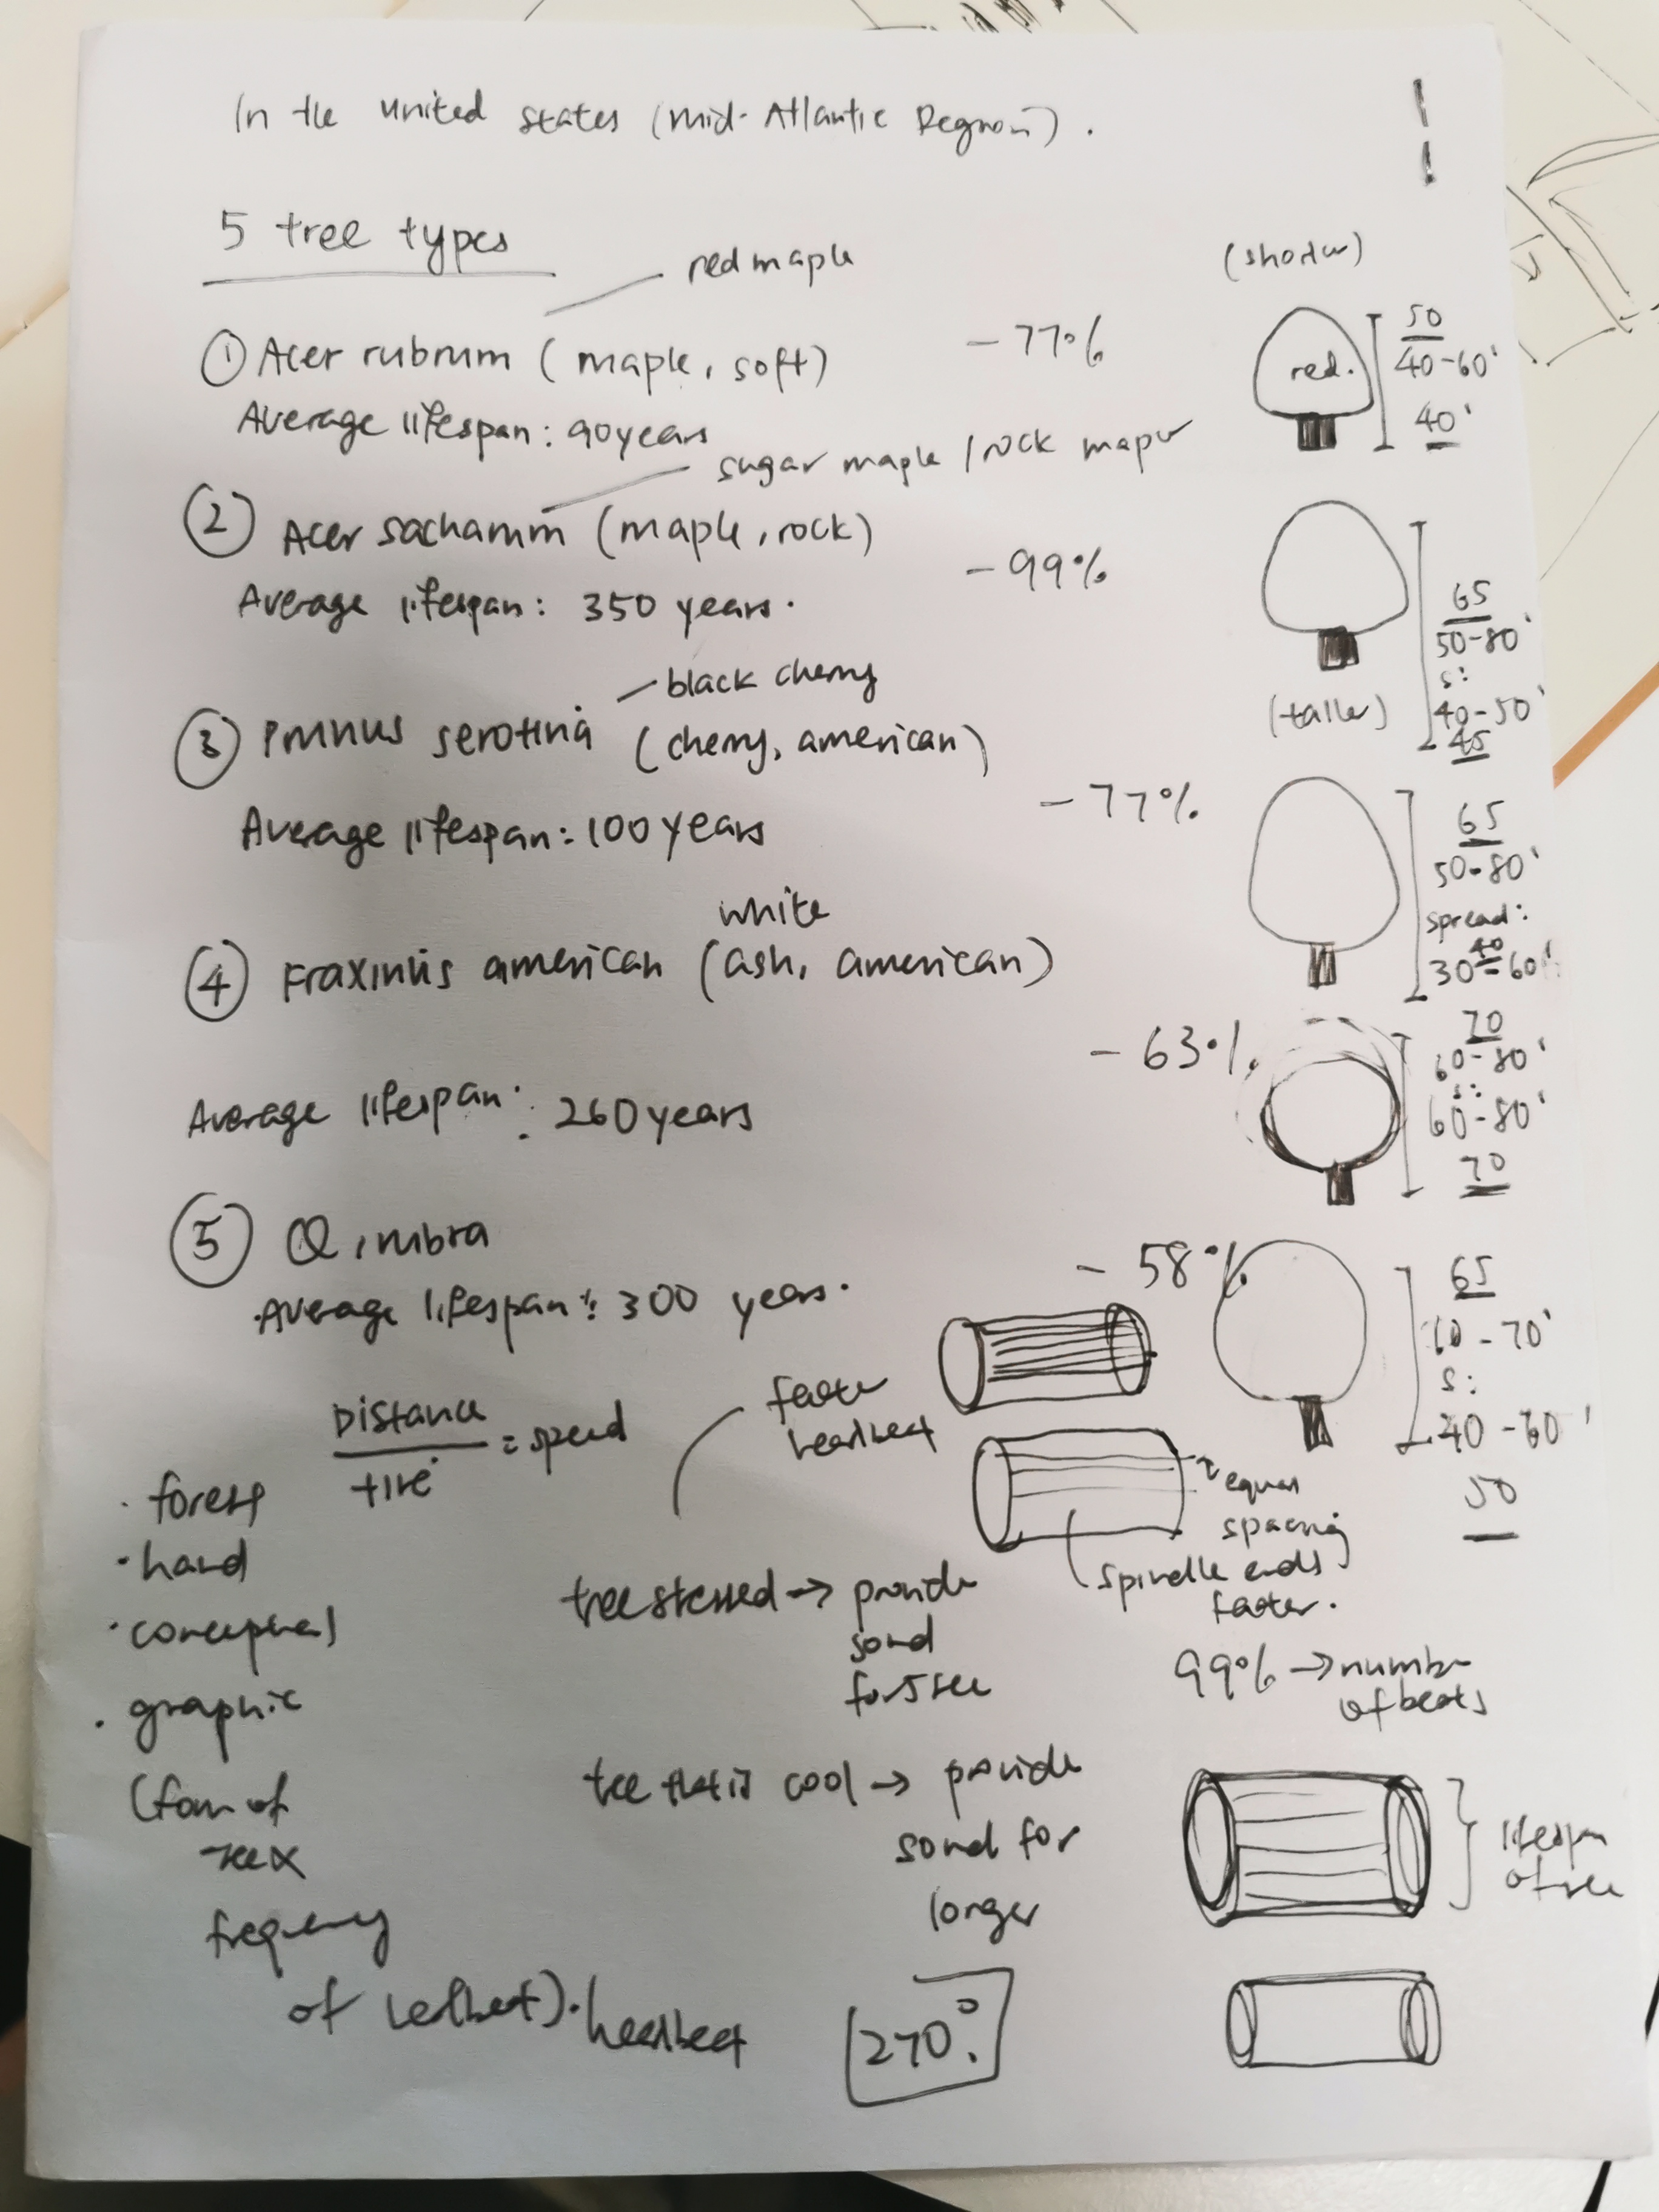 In the united states (mid-Atlantic Region).
5 tree types
red maple
(shorter)
① Acer rubrum (maple, soft)
-77%
red.
50
40-60'
40'
Average lifespan: 90 years
sugar maple / rock maple
② Acer sacharum (maple, rock)
-99%
Average lifespan: 350 years.
65
50-80'
s:
40-50'
45
(taller)
black cherry
③ Prunus serotina (cherry, american)
-77%
Average lifespan: 100 years
65
50-80'
spread:
40
30-60'
white
④ Fraxinus american (ash, american)
-63%
Average lifespan: 260 years
70
60-80'
s:
60-80'
70
⑤ Q, rubra
-58%
Average lifespan: 300 years.
65
60-70'
s:
40-60'
50
Distance
= speed
time
faster
heartbeat
equal
spacing
spindle ends
faster.
· forest
· hand
· conceptual
· graphic
(form of
frequency
of heartbeat). heartbeat
tree stressed → provide
sound
for 5 sec
99% → number
of beats
tree that is cool → provide
sound for
longer
lifespan
of tree
270°